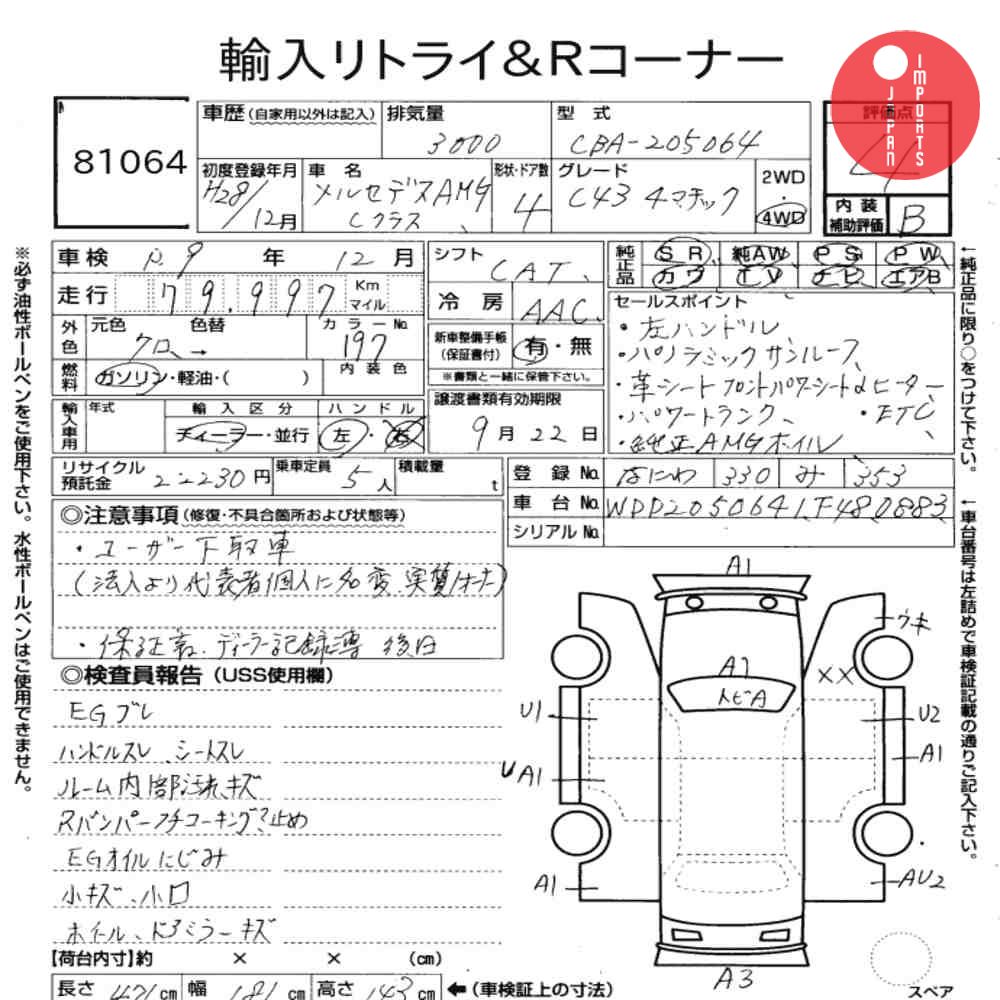 輸入リトライ&Rコーナー
JAPAN IMPORTS
81064
車歴(自家用以外は記入) 排気量 3000 型式 CBA-205064 評価点 4
初度登録年月 H28/12月 車名 メルセデスAMG Cクラス 形状・ドア数 4 グレード C43 4マチック 2WD・4WD 内装補助評価 B
車検 R9年 12月 シフト CAT 純正品 SR 純AW PS PW
カワ TV ナビ エアB
走行 79,997 Km マイル 冷房 AAC セールスポイント
外色 元色 クロ 色替 → カラーNo. 197 内装色
新車整備手帳(保証書付) 有・無
※書類と一緒に保管下さい。
燃料 ガソリン・軽油・( )
・左ハンドル
・パノラミックサンルーフ
・革シート フロントパワーシート&ヒーター
・パワートランク、 ・ETC
・純正AMGホイル
輸入車用 年式 輸入区分 ディーラー・並行 ハンドル 左・右
譲渡書類有効期限 9月22日
リサイクル預託金 22230円 乗車定員 5人 積載量 t
登録No. なにわ 330 み 353
車台No. WDD2050641F480883
シリアルNo.
◎注意事項(修復・不具合箇所および状態等)
・ユーザー下取車
(法人より代表者個人に名変、実質1オーナー)
・保証書、ディーラー記録簿 後日
◎検査員報告(USS使用欄)
EGブレ
ハンドルスレ、シートスレ
ルーム内部汚れ、キズ
Rバンパーフチコーキング?止め
EGオイルにじみ
小キズ、小凹
ホイール、ドアミラーキズ
A1
ウキ
A1
トビA
XX
U1
U2
UA1
A1
A1
AU2
A3
スペア
【荷台内寸】約 × × (cm)
長さ 471cm 幅 181cm 高さ 143cm ←(車検証上の寸法)
※必ず油性ボールペンをご使用下さい。水性ボールペンはご使用できません。
←純正品に限り○をつけて下さい。
←車台番号は左詰めで車検証記載の通りご記入下さい。